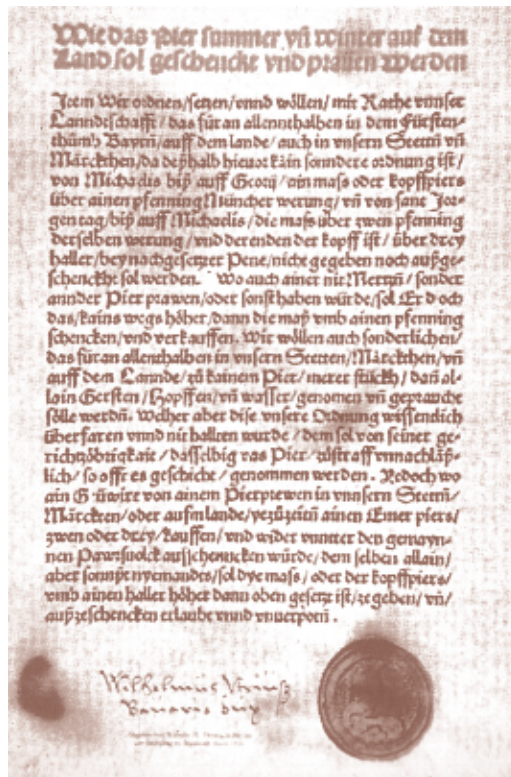 Wie das Pier summer vñ winter auf dem
Land sol geschenckt vnd prauen werden
Item Wir ordnen/setzen/vnnd wöllen/mit Rathe vnnser
Lanndtschafft/das für an allennthalben in dem Fürsten-
thůmb Bayrñ/auff dem lande/auch in vnsern Stettñ vñ
Märckthen/da deßhalb hieuor kain sonndere ordnung ist/
von Michaelis biß auff Georij/ain mass oder kopffpiers
über ainen pfenning Müncher werung/vñ von sant Jor-
gen tag/biß auff Michaelis/die mass über zwen pfenning
derselben werung/vnd derenden der kopff ist/über drey
haller/bey nachgesetzter Pene/nicht gegeben noch außge-
schenckht sol werden. Wo auch ainer nit Mertzñ/sonder
annder Pier prawen/oder sonst haben würde/sol Er doch
das/kains wegs höher/dann die maß vmb ainen pfenning
schencken/vnd verkauffen. Wir wöllen auch sonderlichen/
das für an allenthalben in vnsern Stetten/Märckthen/vñ
auff dem Lannde/zů kainem Pier/merer stückh/dañ al-
lain Gersten/Hopffen/vñ wasser/genomen vñ gepraucht
sölle werdñ. Welher aber dise vnsere Ordnung wissendlich
überfaren vnnd nit hallten wurde/dem sol von seiner ge-
richtzöbrigkait/dasselbig vas Pier/zůstraff vnnachläß-
lich/so offt es geschicht/genommen werden. Yedoch wo
ain Gůwirt von ainem Pierprewen in vnnsern Stettñ/
Märckten/oder aufm lande/yezůzeitñ ainen Emer piers/
zwen oder drey/kauffen/vnd wider vnnter den gemayn-
nen Pawrsuolck ausschenncken würde/dem selben allain/
aber sonnst nyemandes/sol dye mass/oder der kopffpiers/
vmb ainen haller höher dann oben gesetzt ist/ze geben/vñ/
außzeschencken erlaubt vnnd vnuerpotñ.
Wilhelmus